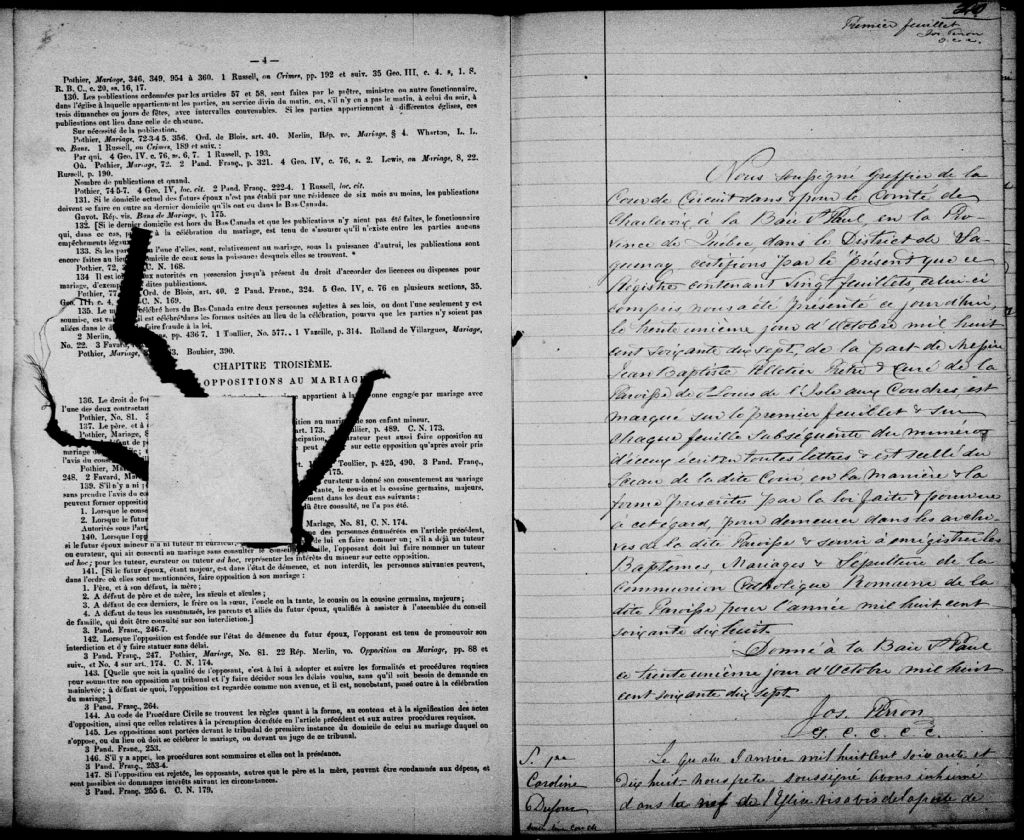 — 4 —
Pothier, Mariage, 346, 349, 954 à 360. 1 Russell, on Crimes, pp. 192 et suiv. 35 Geo. III, c. 4. s, 1. S.
R. B. C., c. 20, ss. 16, 17.
130. Les publications ordonnées par les articles 57 et 58, sont faites par le prêtre, ministre ou autre fonctionnaire,
dans l'église à laquelle appartiennent les parties, au service divin du matin, ou, s'il n'y en a pas le matin, à celui du soir, à
trois dimanches ou jours de fêtes, avec intervalles convenables. Si les parties appartiennent à différentes églises, ces
publications ont lieu dans celle de chacune.
Sur nécessité de la publication.
Pothier, Mariage, 72-3-4 5. 356. Ord. de Blois, art. 40. Merlin, Rép. vo. Mariage, § 4. Wharton, L. L.
vo. Bans. 1 Russell, on Crimes, 189 et suiv. :
Par qui. 4 Geo. IV. c. 76, ss. 6, 7. 1 Russell, p. 193.
Où. Pothier, Mariage, 72. 2 Pand. Franç., p. 321. 4 Geo. IV, c. 76, s. 2. Lewis, on Mariage, 8, 22.
Russell, p. 190.
Nombre de publications et quand.
Pothier, 74 5-7. 4 Geo. IV, loc. cit. 2 Pand. Franç., 222-4. 1 Russell, loc. cit.
131. Si le domicile actuel des futurs époux n'est pas établi par une résidence de six mois au moins, les publications
doivent se faire en outre au dernier domicile qu'ils ont eu dans le Bas Canada.
Guyot, Rép. vis. Bans de Mariage, p. 175.
132. [Si le dernier domicile est hors du Bas Canada et que les publications n'y aient pas été faites, le fonctionnaire
qui, dans ce cas, à la célébration du mariage, est tenu de s'assurer qu'il n'existe entre les parties aucuns
empêchements
133. Si les l'une d'elles, sont, relativement au mariage, sous la puissance d'autrui, les publications sont
encore faites au domicile de ceux sous la puissance desquels elles se trouvent.
Pothier, 72, C. N. 168.
134 Il est autorités en possession jusqu'à présent du droit d'accorder des licences ou dispenses pour
mariage, dites publications.
Pothier, Ord. de Blois, art. 40. 2 Pand. Franç., 324. 5 Geo. IV, c. 76 en plusieurs sections, 35.
Geo. III, c. 4, C. N. 169.
135. Le célébré hors du Bas-Canada entre deux personnes sujettes à ses lois, ou dont l'une seulement y est
soumise, est célébré dans les formes usitées au lieu de la célébration, pourvu que les parties n'y soient pas
allées dans le faire fraude à la loi.
2 Merlin, pp. 436 7. 1 Toullier, No. 577. 1 Vazeille, p. 314. Rolland de Villargues, Mariage,
No. 22. 3 Favard,
Pothier, Mariage, Bouhier, 390.
CHAPITRE TROISIÈME.
OPPOSITIONS AU MARIAGE
136. Le droit de appartient à la engagée par mariage avec
l'une des deux
Pothier, No. 81.
137. Le père, et à au mariage de son enfant mineur.
Pothier, Mariage, art. 173. p. 489. C. N. 173.
curateur peut aussi faire opposition au
sur cette opposition qu'après avoir pris
l'avis du
Pothier, Toullier, p. 425, 490. 3 Pand. Franç.,
248. 2 Favard, 175.
139. S'il n'y a curateur a donné son consentement au mariage
sans prendre l'avis du tante, le cousin et la cousine germains, majeurs,
peuvent former opposition dans les deux cas suivants :
1. Lorsque le être consulté, ne l'a pas été.
2. Lorsque le futur
Autorités sous l'art. Mariage, No. 81, C. N. 174.
140. Lorsque des personnes énumérées en l'article précédent,
si le futur époux mineur n'a ni tuteur ni curateur, de lui en faire nommer un ; s'il a déjà un tuteur
ou curateur, qui ait consenti au mariage sans consulter le conseil l'opposant doit lui faire nommer un tuteur
ad hoc ; pour les tuteur, curateur ou tuteur ad hoc, représenter les intérêts du mineur sur cette opposition.
141. [Si le futur époux, étant majeur, est dans l'état de démence, et non interdit, les personnes suivantes peuvent,
dans l'ordre où elles sont mentionnées, faire opposition à son mariage :
1. Père, et à son défaut, la mère ;
2. A défaut de père et de mère, les aïeuls et aïeules ;
3. A défaut de ces derniers, le frère ou la sœur, l'oncle ou la tante, le cousin ou la cousine germains, majeurs ;
4. A défaut de tous les susnommés, les parents et alliés du futur époux, qualifiés à assister à l'assemblée du conseil
de famille, qui doit être consulté sur son interdiction.]
3. Pand. Franç., 246-7.
142. Lorsque l'opposition est fondée sur l'état de démence du futur époux, l'opposant est tenu de promouvoir son
interdiction et d'y faire statuer sans délai.
3 Pand. Franç., 247. Pothier, Mariage, No. 81. 22 Rép. Merlin, vo. Opposition au Mariage, pp. 88 et
suiv., et No. 4 sur art. 174. C. N. 174.
143. [Quelle que soit la qualité de l'opposant, c'est à lui à adopter et suivre les formalités et procédures requises
pour soumettre son opposition au tribunal et l'y faire décider sous les délais voulus, sans qu'il soit besoin de demande en
mainlevée ; à défaut de quoi, l'opposition est regardée comme non avenue, et il est, nonobstant, passé outre à la célébration
du mariage.]
3 Pand. Franç., 264.
144. Au code de Procédure Civile se trouvent les règles quant à la forme, au contenu et à la signification des actes
d'opposition, ainsi que celles relatives à la péremption décrétée en l'article précédent et aux autres procédures requises.
145. Les oppositions sont portées devant le tribunal de première instance du domicile de celui au mariage duquel on
s'oppose, ou du lieu où doit se célébrer le mariage, ou devant un juge de ce tribunal.
3 Pand. Franç., 253.
146. S'il y a appel, les procédures sont sommaires et elles ont la préséance.
3 Pand. Franç., 253-4.
147. Si l'opposition est rejetée, les opposants, autres que le père et la mère, peuvent être condamnés aux dépens, et
sont passibles de dommages intérêts suivant les circonstances.
3 Pand. Franç., 255 6. C. N. 179.
Premier feuillet
Jos Perron
G.C.C.
Nous Soussigné Greffier de la
Cour de Circuit dans & pour le Comté de
Charlevoix à la Baie St Paul en la Pro
vince de Québec dans le District de Sa-
guenay certifions par le présent que ce
Régistre contenant Vingt feuillets celui-ci
compris nous a été présenté ce jourd'hui,
le trente unième jour d'Octobre mil huit
cent soixante dix sept, de la part de Messire
Jean Baptiste Pelletier Prêtre & Curé de la
Paroisse de St Louis de l'Isle aux Coudres, est
marqué sur le premier feuillet & sur
chaque feuille Subséquente du numéro
d'iceux écrit en toutes lettres & est scellé du
Sceau de la dite Cour en la manière & la
forme prescrites par la loi faite & pourvue
à cet égard, pour demeurer dans les archi-
ves de la dite Paroisse & servir à enregistrer les
Baptêmes, Mariages & Sépulture de la
Communion Catholique Romaine de la
dite Paroisse pour l'année mil huit cent
soixante dix huit.
Donné à la Baie St Paul
ce trente unième jour d'Octobre mil huit
cent soixante dix sept
Jos. Perron
G. C. C. C. C.
S. 1re
Caroline
Dufour
Le quatre Janvier mil huit cent soixante et
dix huit nous prêtre soussigné avons inhumé
dans la nef de l'Eglise vis à vis de la porte de